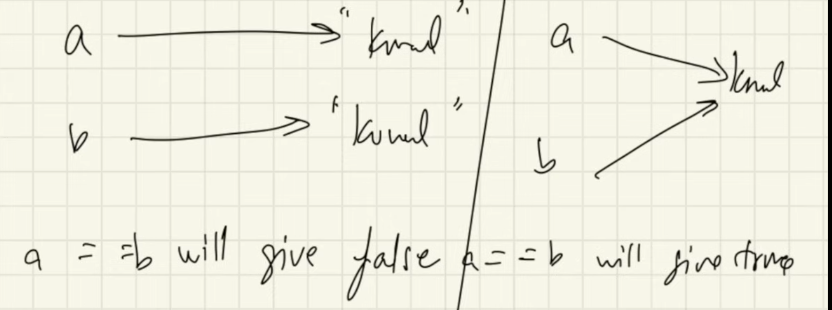 a "Kunal"
b "Kunal"
a = =b will give false
a
b Kunal
a = = b will give true